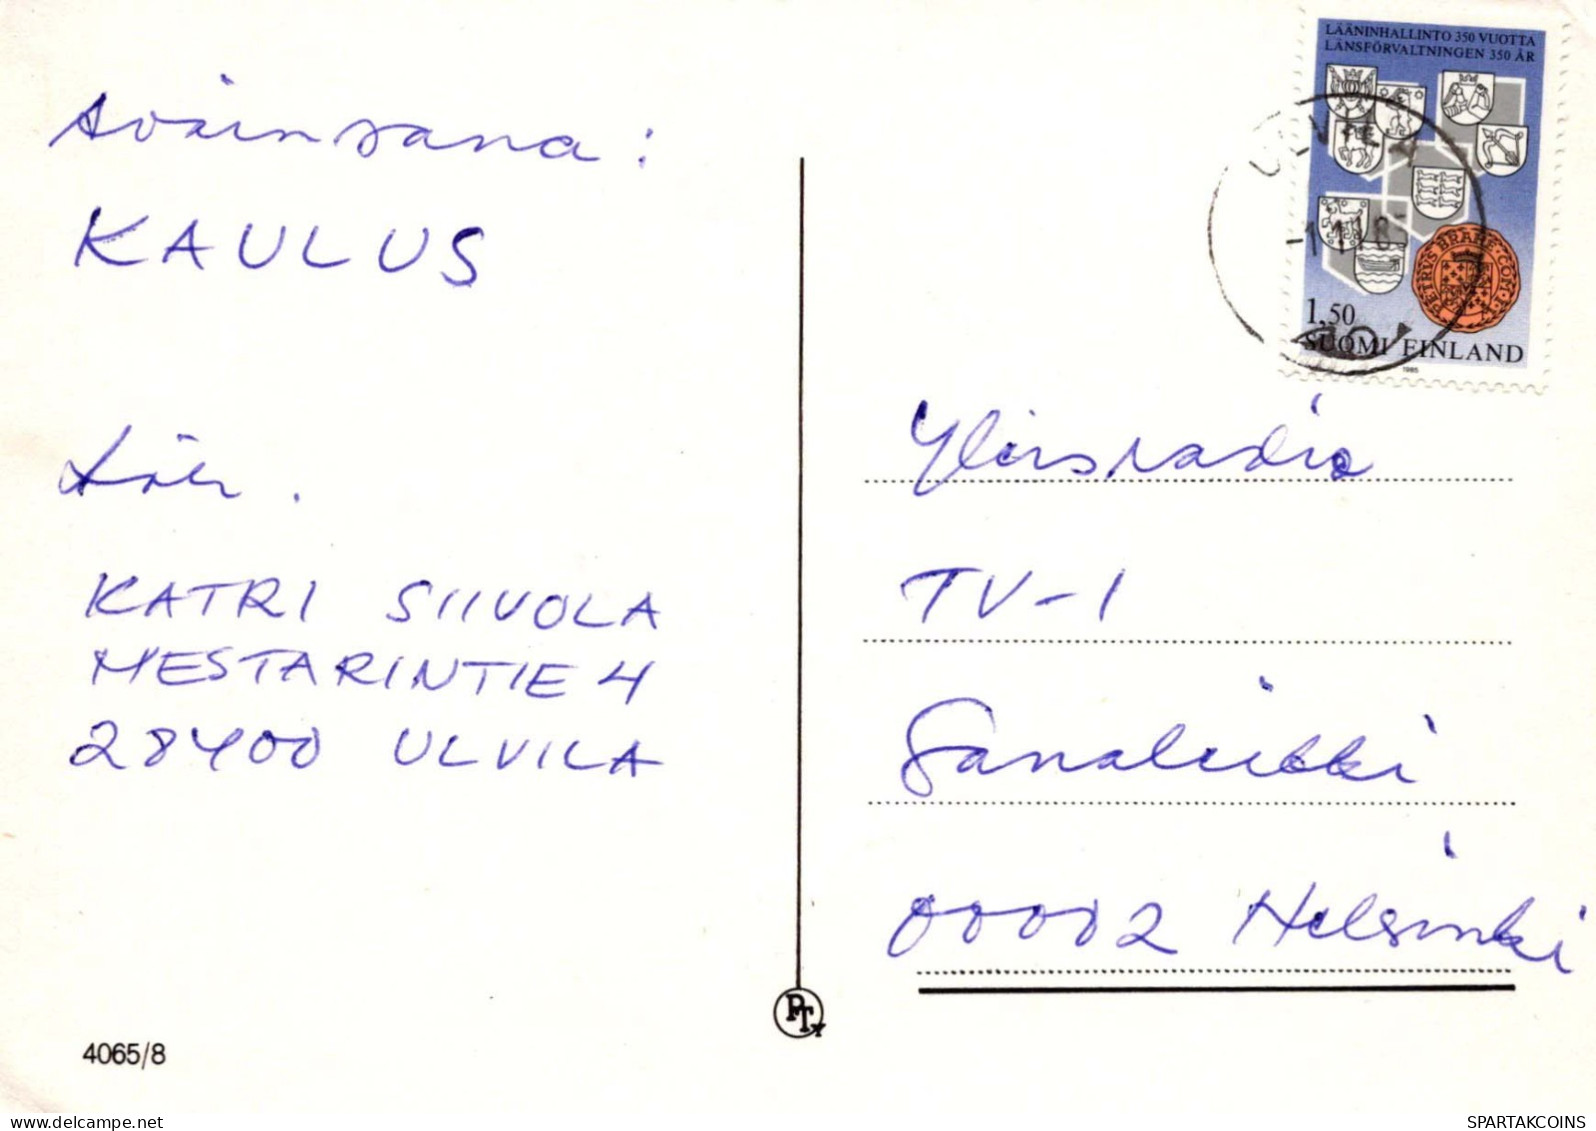 Avainsana:
KAULUS
Läh.
KATRI SIIVOLA
MESTARINTIE 4
28400 ULVILA
4065/8
PTy
LÄÄNINHALLINTO 350 VUOTTA
LÄNSFÖRVALTNINGEN 350 ÅR
ULVILA
PETRVS BRAHE COM
1,50
SUOMI FINLAND
1985
Yleisradio
TV-1
Sanaleikki
00002 Helsinki
delcampe.net
SPARTAKCOINS